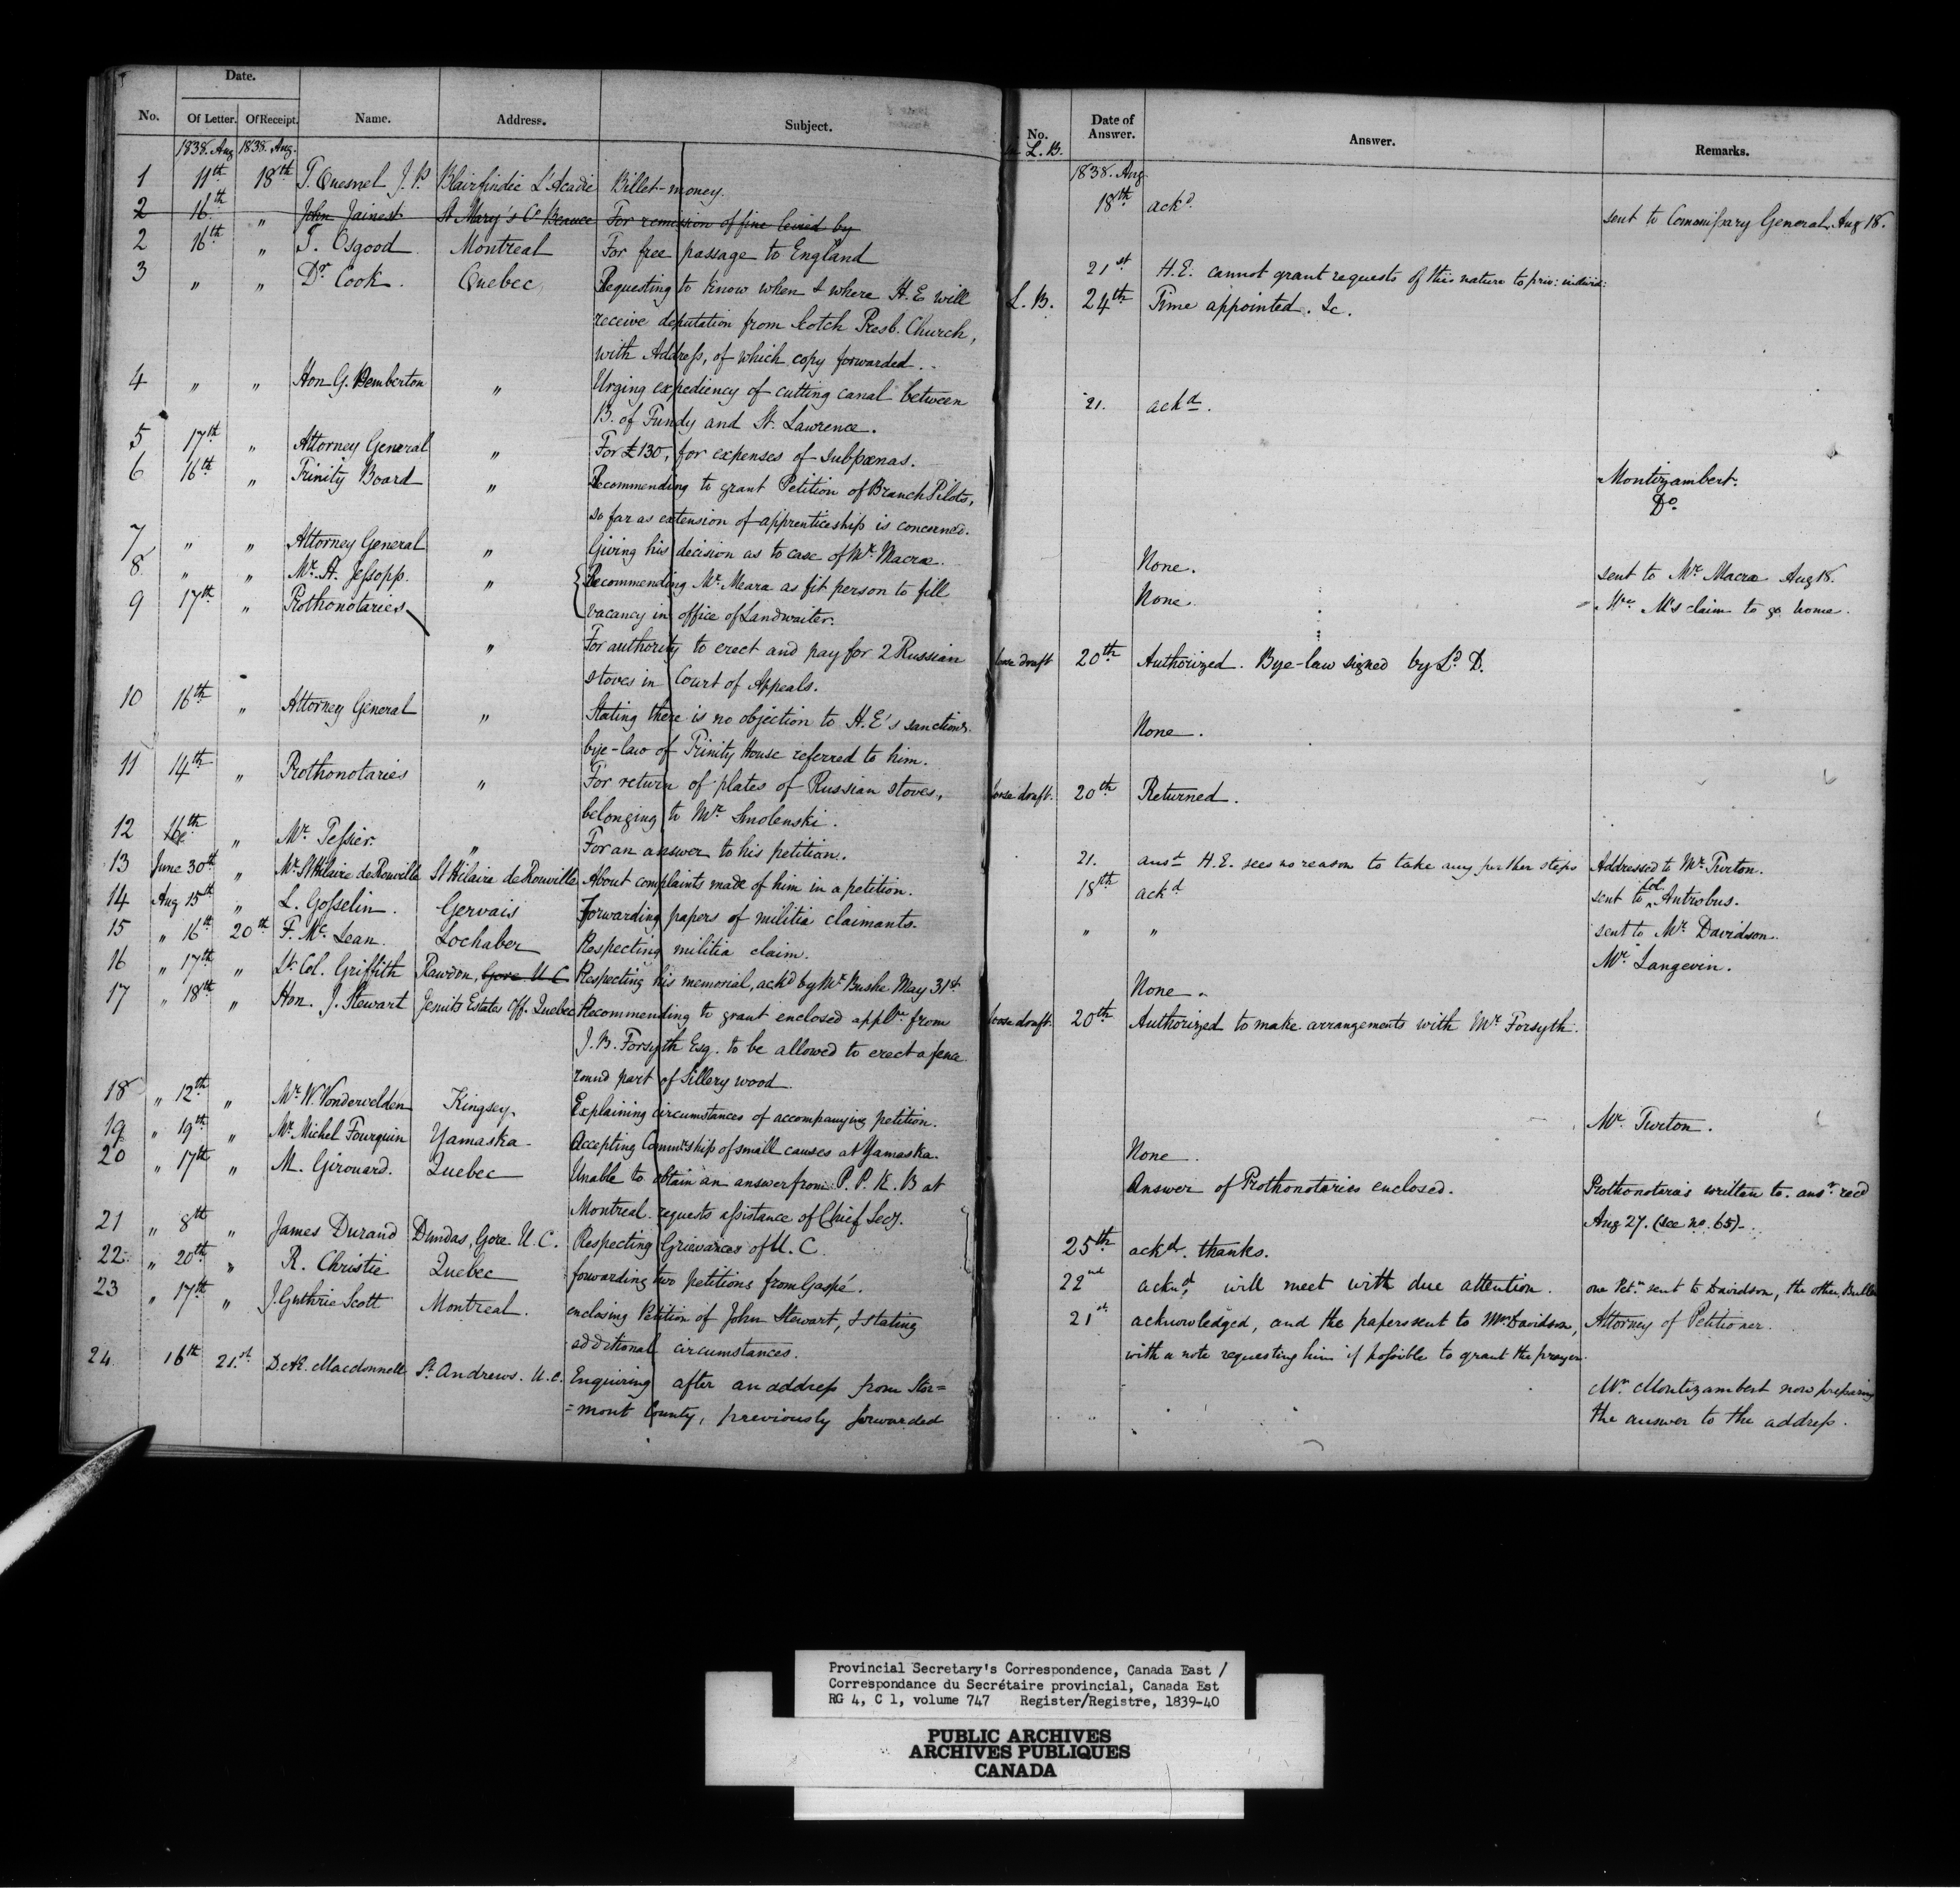 Date.
No. Of Letter. Of Receipt. Name. Address. Subject.
1838. Aug 1838. Aug.
1 11th 18th T. Quesnel J. P. Blairfindie L'Acadie Billet-money.
2 16th " John Jainest St Mary's Co Beauce For remission of fine levied by
2 16th " T. Osgood Montreal For free passage to England
3 " " Dr. Cook. Quebec Requesting to know when & where H. E. will
receive deputation from Scotch Presb. Church,
with Address, of which copy forwarded.
4 " " Hon G. Pemberton " Urging expediency of cutting canal between
B. of Fundy and St. Lawrence.
5 17th " Attorney General " For £130, for expenses of subpœnas.
6 16th " Trinity Board " Recommending to grant Petition of Branch Pilots,
so far as extension of apprenticeship is concerned.
7 " " Attorney General " Giving his decision as to case of Mr. Macrae.
8 " " Mr. H. Jessopp. " Recommending Mr. Meara as fit person to fill
vacancy in office of Landwaiter.
9 17th " Prothonotaries " For authority to erect and pay for 2 Russian
stoves in Court of Appeals.
10 16th " Attorney General " Stating there is no objection to H. E's sanctiong.
bye-law of Trinity House referred to him.
11 14th " Prothonotaries " For return of plates of Russian stoves,
belonging to Mr. Smolenski.
12 16th " Mr. Tessier. " For an answer to his petition.
13 June 30th " Mr. St Hilaire de Rouville St Hilaire de Rouville About complaints made of him in a petition.
14 Aug 15th " L. Gosselin. Gervais Forwarding papers of militia claimants.
15 " 16th 20th F. Mc. Lean. Lochaber Respecting militia claim.
16 " 17th " Lt. Col. Griffith Rawdon, Gore U C Respecting his memorial, ackd by Mr. Bushe May 31st
17 " 18th " Hon. J. Stewart Jesuits Estates Off. Quebec Recommending to grant enclosed applon from
J. B. Forsyth Esq. to be allowed to erect a fence
round part of Sillery wood.
18 " 12th " Mr. W. Vondervelden Kingsey. Explaining circumstances of accompanying petition.
19 " 19th " Mr. Michel Fourquin Yamaska. Accepting Commrship of small causes at Yamaska.
20 " 17th " M. Girouard. Quebec Unable to obtain an answer from P. P. K. B at
Montreal. requests assistance of Chief Secy.
21 " 8th " James Durand Dundas, Gore. U. C. Respecting Grievances of U. C.
22 " 20th " R. Christie Quebec forwarding two petitions from Gaspé.
23 " 17th " J. Guthrie Scott Montreal. enclosing Petition of John Stewart, & stating
additional circumstances.
24 16th 21st. D. Æ. Macdonnell St. Andrews. U. C. Enquiring after an address from Stor=
=mont County, previously forwarded
No. L. B. Date of Answer. Answer. Remarks.
1838. Aug
18th ackd. sent to Commissary General, Aug 18.
21st H. E. cannot grant requests of this nature to priv: individ:
L. B. 24th Time appointed. &c.
21. ackd.
Montizambert.
Do.
None. sent to Mr. Macrae Aug 18.
None. Mr. M's claim to go home.
loose draft 20th Authorized. Bye-law signed by Ld. D.
None.
loose draft. 20th Returned.
21. ansd H. E. sees no reason to take any further steps Addressed to Mr. Turton.
18th ackd sent to Col. Antrobus.
" " sent to Mr. Davidson.
Mr. Langevin.
None.
loose draft. 20th Authorized to make arrangements with Mr. Forsyth.
Mr. Turton.
None.
Answer of Prothonotaries enclosed. Prothonotaries written to. ansr. recd
Aug 27. (see no. 65).
25th ackd. thanks.
22nd acknd, will meet with due attention. one Petn. sent to Davidson, the other, Buller
21st. acknowledged, and the papers sent to Mr. Davidson, Attorney of Petitioner.
with a note requesting him if possible to grant the prayer.
Mr. Montizambert now preparing
the answer to the address.
Provincial Secretary's Correspondence, Canada East /
Correspondance du Secrétaire provincial, Canada Est
RG 4, C 1, volume 747 Register/Registre, 1839-40
PUBLIC ARCHIVES
ARCHIVES PUBLIQUES
CANADA